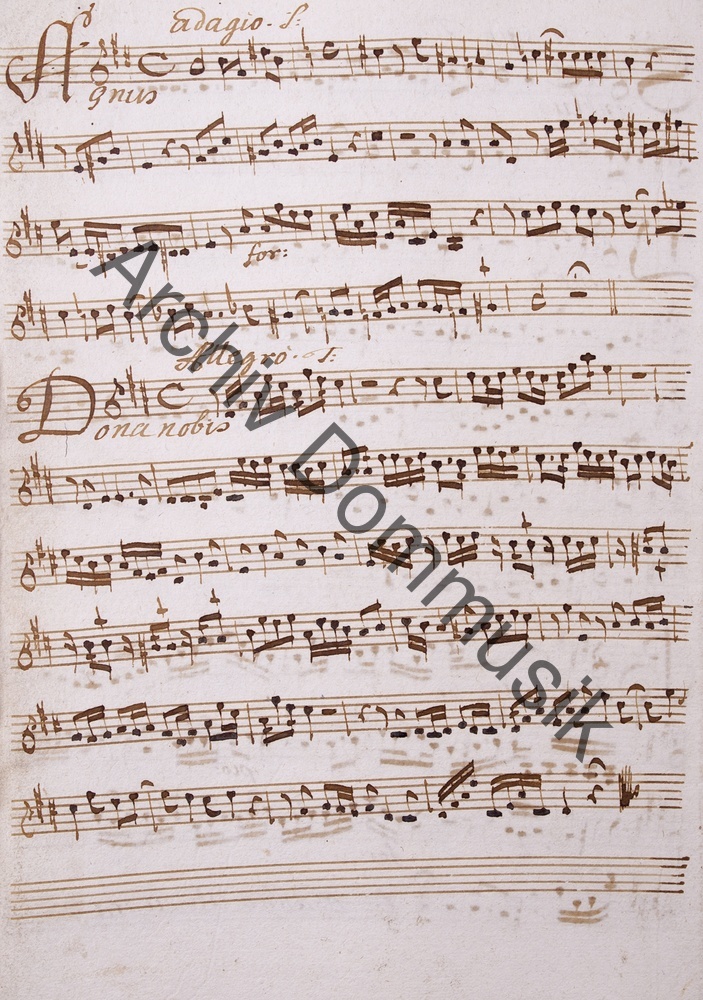 Adagio. S:
Agnus
for:
Allegro. T:
Dona nobis
Archiv Dommusik